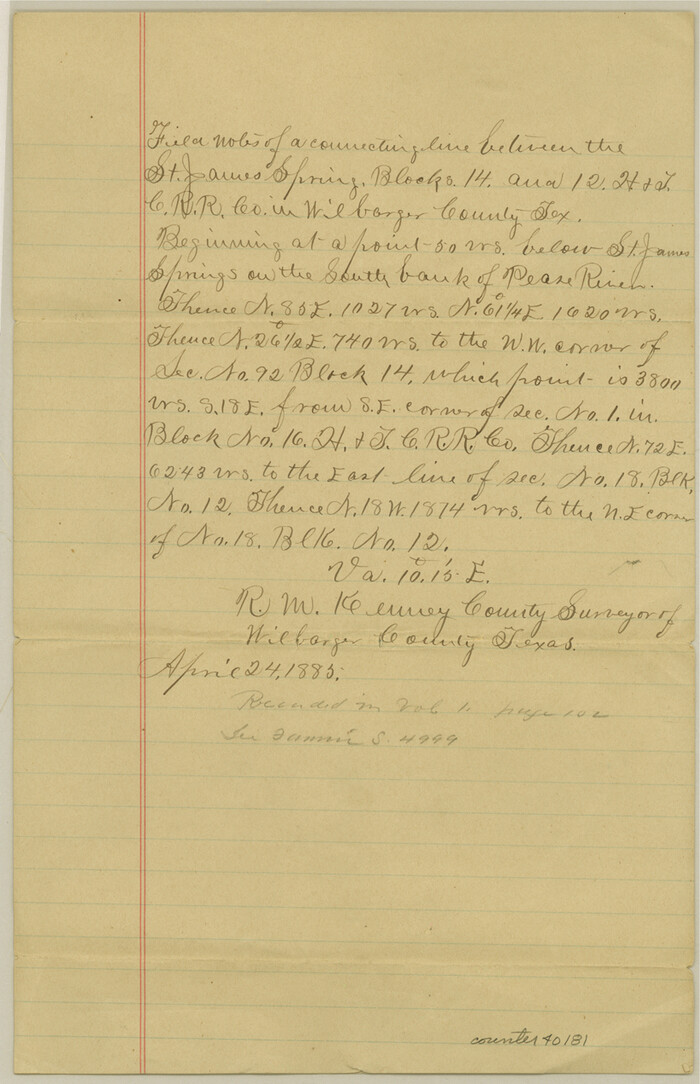 Field notes of a connecting line between the
St. James Spring, Blocks. 14. and 12. H & T.
C. R.R. Co. in Wilbarger County Tex.
Beginning at a point 50 vrs. below St. James
Springs on the South bank of Pease River.
Thence N. 85 E. 1027 vrs. N. 61¼° E. 1620 vrs.
Thence N. 26½° E. 740 vrs. to the W.W. corner of
Sec. No. 92 Block 14. which point is 3800
vrs. S. 18 E. from S.E. corner of sec. No. 1. in.
Block No. 16. H. & T. C. R.R. Co. Thence N. 72 E.
6243 vrs. to the East line of sec. No. 18. Blk,
No. 12. Thence N. 18 W. 1874 vrs. to the N.E corner
of No. 18. Blk. No. 12.
Va. 10.° 15' E.
R. M. Kenney County Surveyor of
Wilbarger County Texas.
April 24, 1885.
Recorded in Vol 1. page 102
See S. 4999
counter 40181